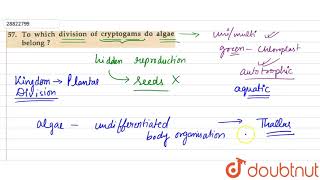 28822799
57. To which division of cryptogams do algae → uni/multi
belong ?
green - chloroplast
hidden reproduction
autotrophic
Kingdom → Plantae
seeds X
aquatic
Division
algae - undifferentiated → Thallus
body organisation
doubtnut